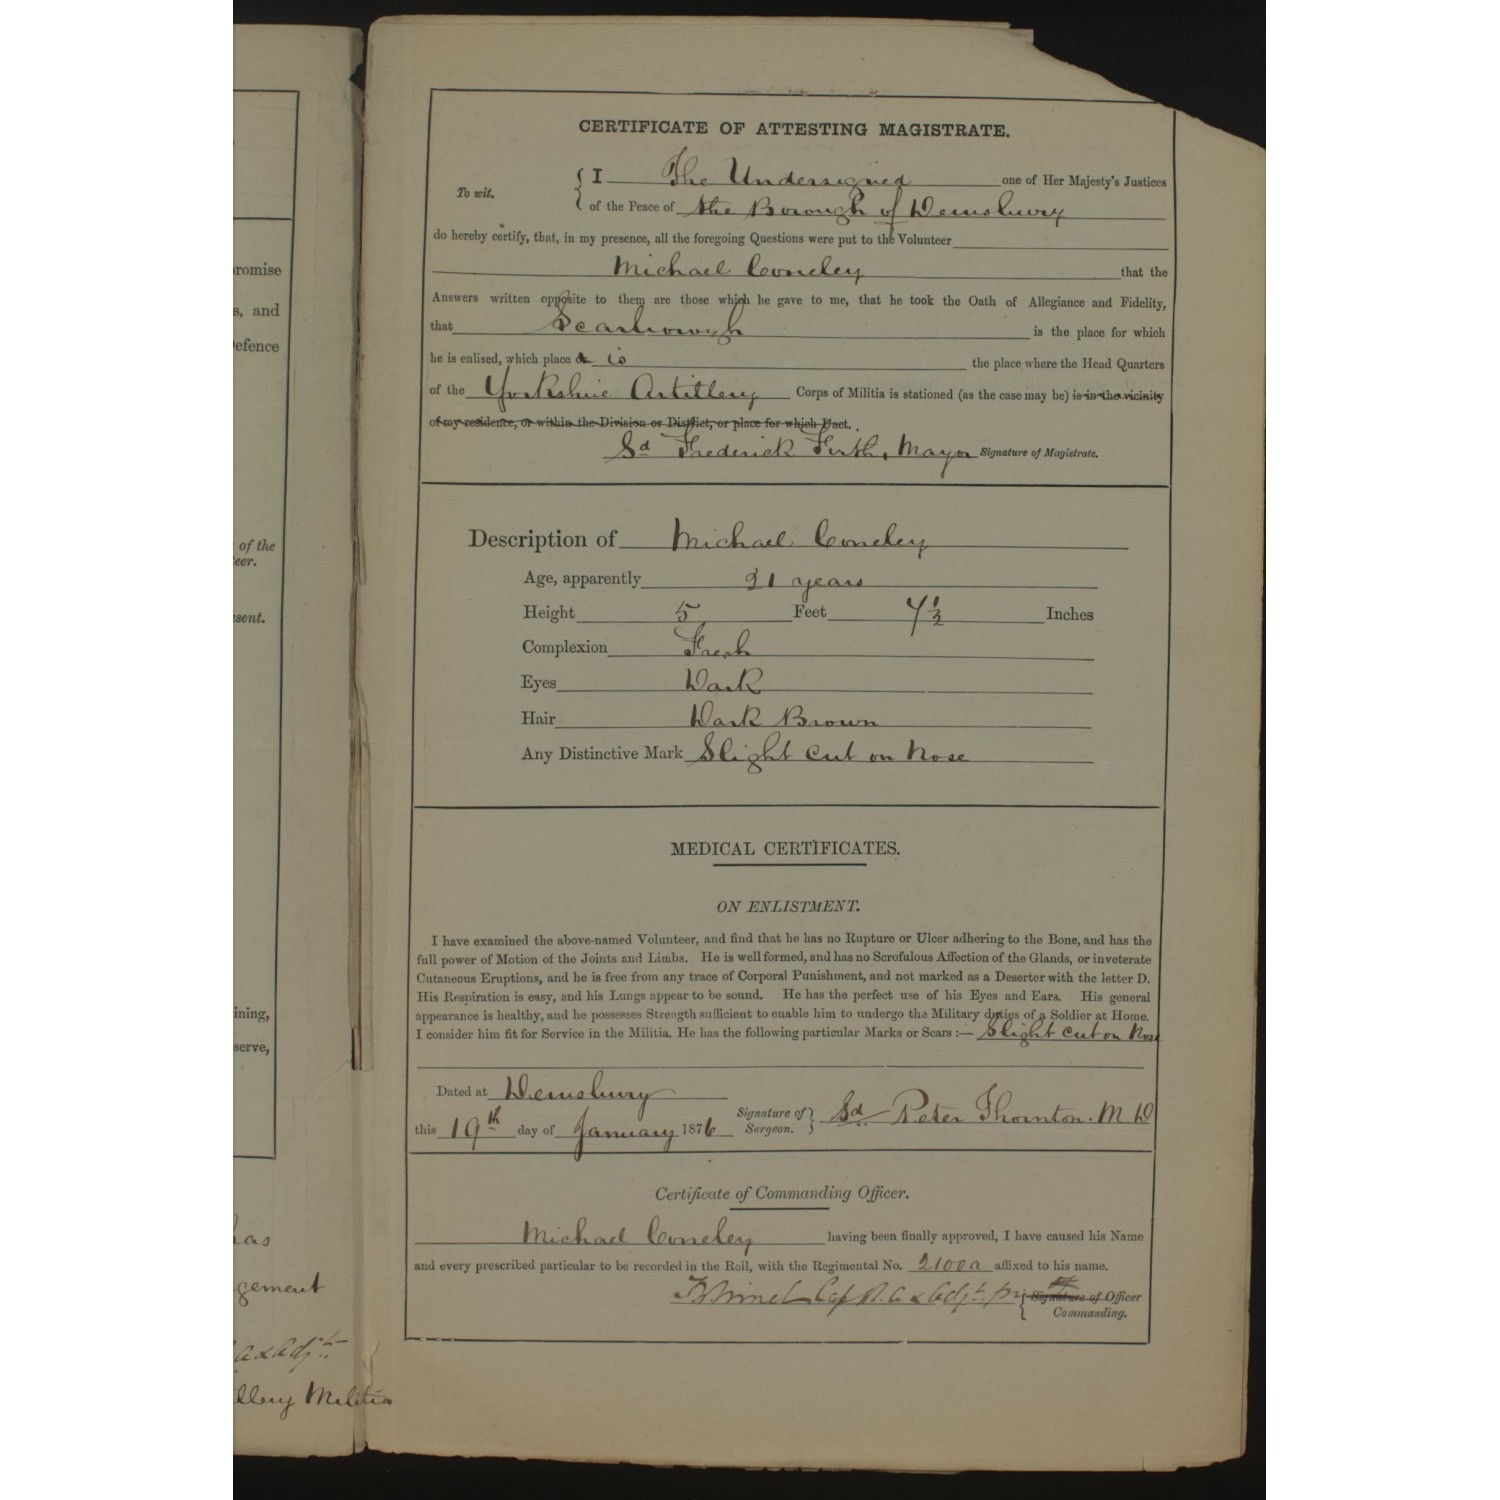 CERTIFICATE OF ATTESTING MAGISTRATE.
To wit. { I The Undersigned one of Her Majesty's Justices
of the Peace of the Borough of Dewsbury
do hereby certify, that, in my presence, all the foregoing Questions were put to the Volunteer
Michael Coneley that the
Answers written opposite to them are those which he gave to me, that he took the Oath of Allegiance and Fidelity,
that Scarborough is the place for which
he is enlised, which place is the place where the Head Quarters
of the Yorkshire Artillery Corps of Militia is stationed (as the case may be) is in the vicinity
of my residence, or within the Division or District, or place for which I act.
Sd Frederick Firth, Mayor Signature of Magistrate.
Description of Michael Coneley
Age, apparently 21 years
Height 5 Feet 4 1/2 Inches
Complexion Fresh
Eyes Dark
Hair Dark Brown
Any Distinctive Mark Slight cut on Nose
MEDICAL CERTIFICATES.
ON ENLISTMENT.
I have examined the above-named Volunteer, and find that he has no Rupture or Ulcer adhering to the Bone, and has the
full power of Motion of the Joints and Limbs. He is well formed, and has no Scrofulous Affection of the Glands, or inveterate
Cutaneous Eruptions, and he is free from any trace of Corporal Punishment, and not marked as a Deserter with the letter D.
His Respiration is easy, and his Lungs appear to be sound. He has the perfect use of his Eyes and Ears. His general
appearance is healthy, and he possesses Strength sufficient to enable him to undergo the Military duties of a Soldier at Home.
I consider him fit for Service in the Militia. He has the following particular Marks or Scars :— Slight cut on Nose
Dated at Dewsbury
this 19th day of January 1876 Signature of Surgeon. } Sd Peter Thornton. M.D
Certificate of Commanding Officer.
Michael Coneley having been finally approved, I have caused his Name
and every prescribed particular to be recorded in the Roll, with the Regimental No. 2100a affixed to his name.
Cap R.A & Adjt. { Signature of Officer
Commanding.
romise
s, and
efence
of the
eer.
sent.
ining,
serve,
has
gement
a & Adjt.
llery Militia